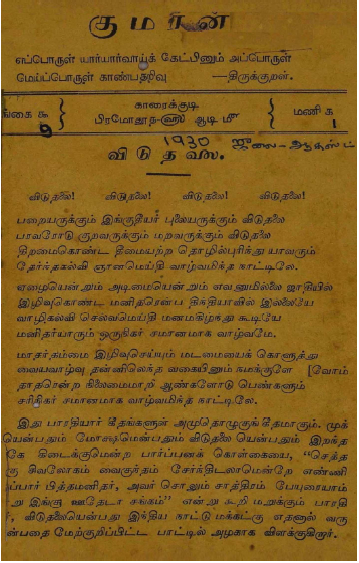 குமரன்
எப்பொருள் யார்யார்வாய்க் கேட்பினும் அப்பொருள்
மெய்ப்பொருள் காண்பதறிவு —திருக்குறள்.
காரைக்குடி
ங்கை கூ } பிரமோதூத-ஹு ஆடி மீ { மணி க
9 1
1930 ஜுலை-ஆகஸ்ட்
விடுதலை.
விடுதலை! விடுதலை! விடுதலை! விடுதலை!
பறையருக்கும் இங்குதீயர் புலையருக்கும் விடுதலை
பரவரோடு குறவருக்கும் மறவருக்கும் விடுதலை
திறமைகொண்ட தீமையற்ற தொழில்புரிந்து யாவரும்
தேர்ந்தகல்வி ஞானமெய்தி வாழ்வமிந்த நாட்டிலே.
ஏழையென்றும் அடிமையென்றும் எவனுமில்லை ஜாதியில்
இழிவுகொண்ட மனிதரென்ப திந்தியாவில் இல்லையே
வாழிகல்வி செல்வமெய்தி மனமகிழ்ந்து கூடியே
மனிதர்யாரும் ஒருநிகர் சமானமாக வாழ்வமே.
மாதர்தம்மை இழிவுசெய்யும் மடமையைக் கொளுத்து
வையவாழ்வு தன்னிலெந்த வகையினும் நமக்குளே [வோம்
தாதரென்ற நிலைமைமாறி ஆண்களோடு பெண்களும்
சரிநிகர் சமானமாக வாழ்வமிந்த நாட்டிலே.
இது பாரதியார் கீதங்களுள் அமுதொழுகுங்கீதமாகும். முக்
யென்பதும் மோக்ஷமென்பதும் விடுதலை யென்பதும் இறந்த
கே கிடைக்குமென்ற பார்ப்பனக் கொள்கையை, “செத்த
ரு சிவலோகம் வைகுந்தம் சேர்ந்திடலாமென்றே எண்ணி
ப்பார் பித்தமனிதர், அவர் சொலும் சாத்திரம் பேயுரையாம்
று இங்கு ஊதேடா சங்கம்” என்று கூறி மறுக்கும் பாரதி
ர், விடுதலையென்பது இந்திய நாட்டு மக்கட்கு எதனால் வரு
ன்பதை மேற்குறிப்பிட்ட பாட்டில் அழகாக விளக்குகிறார்.